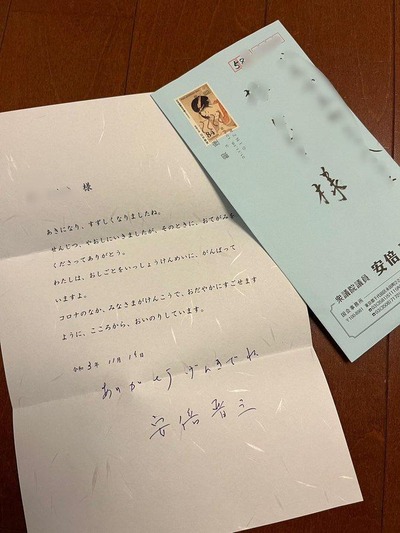 様
あきになり、すずしくなりましたね。
せんじつ、やおしにいきましたが、そのときに、おてがみを
くださってありがとう。
わたしは、おしごとをいっしょうけんめいに、がんばって
いますよ。
コロナのなか、みなさまがけんこうで、おだやかにすごせます
ように、こころから、おいのりしています。
令和3年 11月19日
ありがとう げんきでね
安倍晋三
様
衆議院議員 安倍
国会事務所